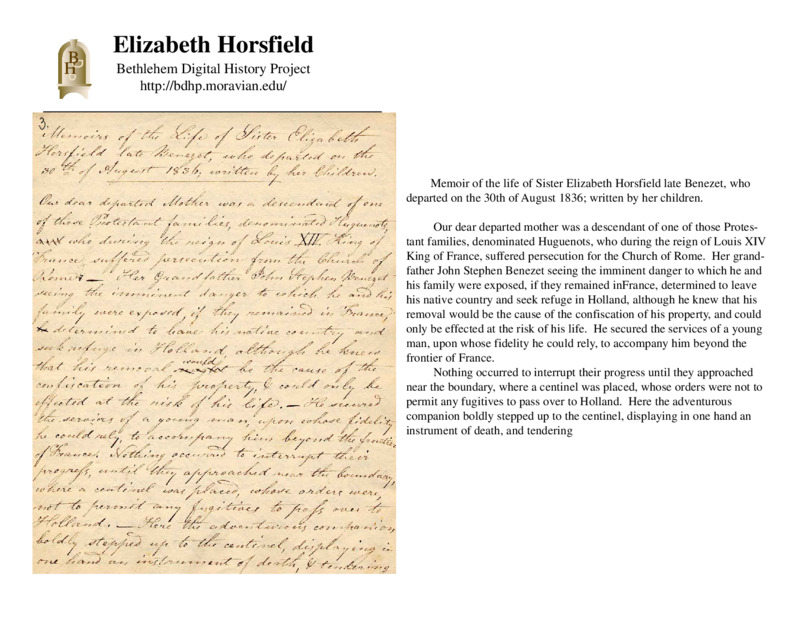 Elizabeth Horsfield
Bethlehem Digital History Project
http://bdhp.moravian.edu/
B
H
3.
Memoirs of the Life of Sister Elizabeth
Horsfield late Benezet, who departed on the
30th of August 1836, written by her Children.
Our dear departed Mother was a descendant of one
of those Protestant families, denominated Huguenots,
who during the reign of Louis XII, King of
France, suffered persecution from the Church of
Rome. — Her Grandfather John Stephen Benezet
seeing the imminent danger to which he and his
family were exposed, if they remained in France,
determined to leave his native country and
seek refuge in Holland, although he knew
that his removal would be the cause of the
confiscation of his property, & could only be
effected at the risk of his life. — He secured
the services of a young man, upon whose fidelity
he could rely, to accompany him beyond the frontier
of France. Nothing occurred to interrupt their
progress, until they approached near the boundary,
where a centinel was placed, whose orders were,
not to permit any fugitives to pass over to
Holland. — Here the adventurous companion
boldly stepped up to the centinel, displaying in
one hand an instrument of death, & tendering
Memoir of the life of Sister Elizabeth Horsfield late Benezet, who
departed on the 30th of August 1836; written by her children.
Our dear departed mother was a descendant of one of those Protes-
tant families, denominated Huguenots, who during the reign of Louis XIV
King of France, suffered persecution for the Church of Rome. Her grand-
father John Stephen Benezet seeing the imminent danger to which he and
his family were exposed, if they remained inFrance, determined to leave
his native country and seek refuge in Holland, although he knew that his
removal would be the cause of the confiscation of his property, and could
only be effected at the risk of his life. He secured the services of a young
man, upon whose fidelity he could rely, to accompany him beyond the
frontier of France.
Nothing occurred to interrupt their progress until they approached
near the boundary, where a centinel was placed, whose orders were not to
permit any fugitives to pass over to Holland. Here the adventurous
companion boldly stepped up to the centinel, displaying in one hand an
instrument of death, and tendering